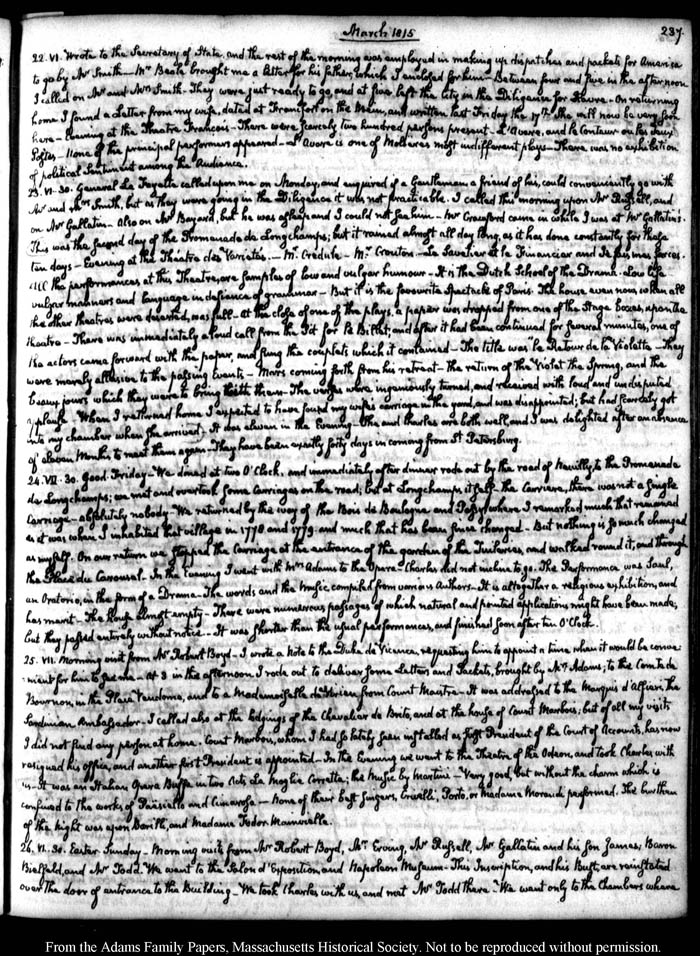 March 1815
237.
22. VI. Wrote to the Secretary of State, and the rest of the morning was employed in making up dispatches and packets for America
to go by Mr Smith — Mr Beale brought me a letter for his father, which I enclosed for him — Between four and five in the afternoon
I called on Mr and Mrs Smith — They were just ready to go, and at five left the city in the Diligence for Havre. On returning
home I found a Letter from my wife, dated at Francfort on the Mein, and written last Friday the 17th. She will now be very soon
here — Evening at the Theatre Francois — There were scarcely two hundred persons present — L'Avare, and le Conteur ou les deux
Postes — None of the principal performers appeared — L'Avare is one of Molieres most indifferent plays — There was no exhibition
of political Sentiment among the Audience.
23. VI. 30. General La Fayette called upon me on Monday, and enquired if a Gentleman, a friend of his, could conveniently go with
Mr and Mrs Smith, but as they were going in the Diligence it was not practicable. I called this morning upon Mr Russell, and
on Mr Gallatin. Also on Mr Bayard, but he was asleep and I could not see him — Mr Crawford came in while I was at Mr Gallatin's.
This was the second day of the Promenade de Longchamps; but it rained almost all day long, as it has done constantly for these
ten days — Evening at the Theatre des Varietés — Mr. Credule — Mr. Crouton — Le Savetier et le Financier and Je fais mes farces.
All the performances at this Theatre, are samples of low and vulgar humour — It is the Dutch School of the Drama — Low life
vulgar manners and language in defiance of grammar — But it is the favourite Spectacle of Paris. The house even now, when all
the other theatres were deserted, was full. At the close of one of the plays, a paper was dropped from one of the Stage boxes, upon the
theatre — There was immediately a loud call from the Pit for Le Billet, and after it had been continued for several minutes, one of
the actors came forward with the paper, and sung the couplets which it contained — The title was "le Retour de la Violette — They
were merely allusive to the passing Events — Mars coming forth from his retreat — the return of the Violet the Spring, and the
beaux jours which they were to bring with them — The verses were ingeniously turned, and received with loud and undisputed
applause — When I returned home I expected to have found my wife's carriage in the yard, and was disappointed; but had scarcely got
into my chamber when she arrived. It was eleven in the Evening. She and Charles are both well, and I was delighted after an absence
of eleven Months to meet them again — They have been exactly forty days in coming from St Petersburg.
24. VII. 30. Good Friday — We dined at two O'Clock, and immediately after dinner rode out by the road of Neuilly, to the Promenade
de Longchamps; we met and overtook some Carriages on the road; but at Longchamps itself, the Carriere, there was not a single
Carriage — absolutely nobody — We returned by the way of the Bois de Boulogne and Passy, where I remarked much that remained
as it was when I inhabited that village in 1778 and 1779. and much that has been since changed — But nothing is so much changed
as myself. On our return we stopped the Carriage at the entrance of the garden of the Tuileries, and walked round it, and through
the Place du Carousel. In the Evening I went with Mrs Adams to the Opera — Charles did not incline to go. The Performance was Saul,
an Oratorio, in the form of a Drama — The words and the Music compiled from various Authors — It is altogether a religious exhibition, and
has merit — The house almost empty — There were numerous passages of which natural and pointed applications might have been made;
but they passed entirely without notice — It was shorter than the usual performances, and finished soon after ten O'Clock.
25. VII. Morning visit from Mr Robert Boyd — I wrote a Note to the Duke de Vicence, requesting him to appoint a time when it would be conve-
nient for him to see me — At 3 in the afternoon I rode out to deliver some Letters and Packets, brought by Mrs Adams; to the Comte de
in the Place Vendome, and to a Mademoiselle from Count Maistre — It was addressed to the Marquis d'Alfieri the
Sardinian Ambassador — I called also at the lodgings of the Chevalier de Brito, and at the house of Count Marbois; but of all my visits
I did not find any person at home. Count Marbois, whom I had so lately seen installed as first President of the Court of Accounts, has now
resigned his office, and another first President is appointed — In the Evening we went to the Theatre of the Odeon, and took Charles with
us — It was an Italian Opera Buffa in two Acts La Moglie Corretta; the Music by Martini — Very good but without the charm which is
confined to the works of Paisiello and Cimarosa — None of their best singers, Crivelli, Porto, or Madame Morandi performed. The burthen
of the night was upon Barilli, and Madame Fodor. Mainvielle.
26. VI. 30. Easter Sunday — Morning visits from Mr Robert Boyd, Mr. Erving, Mr Russell, Mr Gallatin and his Son James, Baron
Bielfeld, and Mr Todd. We went to the Salon d'Exposition and Napoleon Museum — This Inscription, and his Bust, are reinstated
over the door of entrance to the Building — We took Charles with us, and met Mr Todd there — We went only to the Chambers where
From the Adams Family Papers, Massachusetts Historical Society. Not to be reproduced without permission.